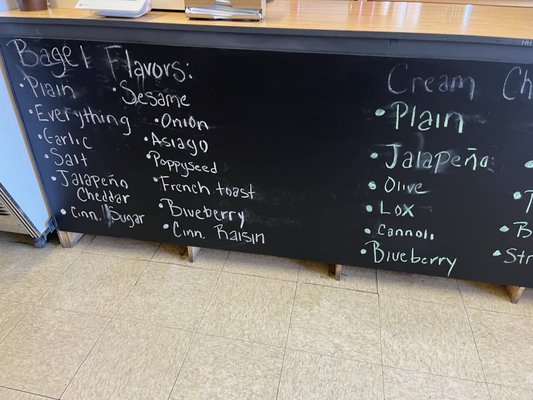 Bagel Flavors:
• Plain
• Everything
• Garlic
• Salt
• Jalapeño
Cheddar
• Cinn. Sugar
• Sesame
• Onion
• Asiago
• Poppyseed
• French toast
• Blueberry
• Cinn. Raisin
• Cannoli
• Blueberry
Cream Ch
• Plain
• Jalapeño
• Olive
• Lox
• Cannoli
• Blueberry
• Str